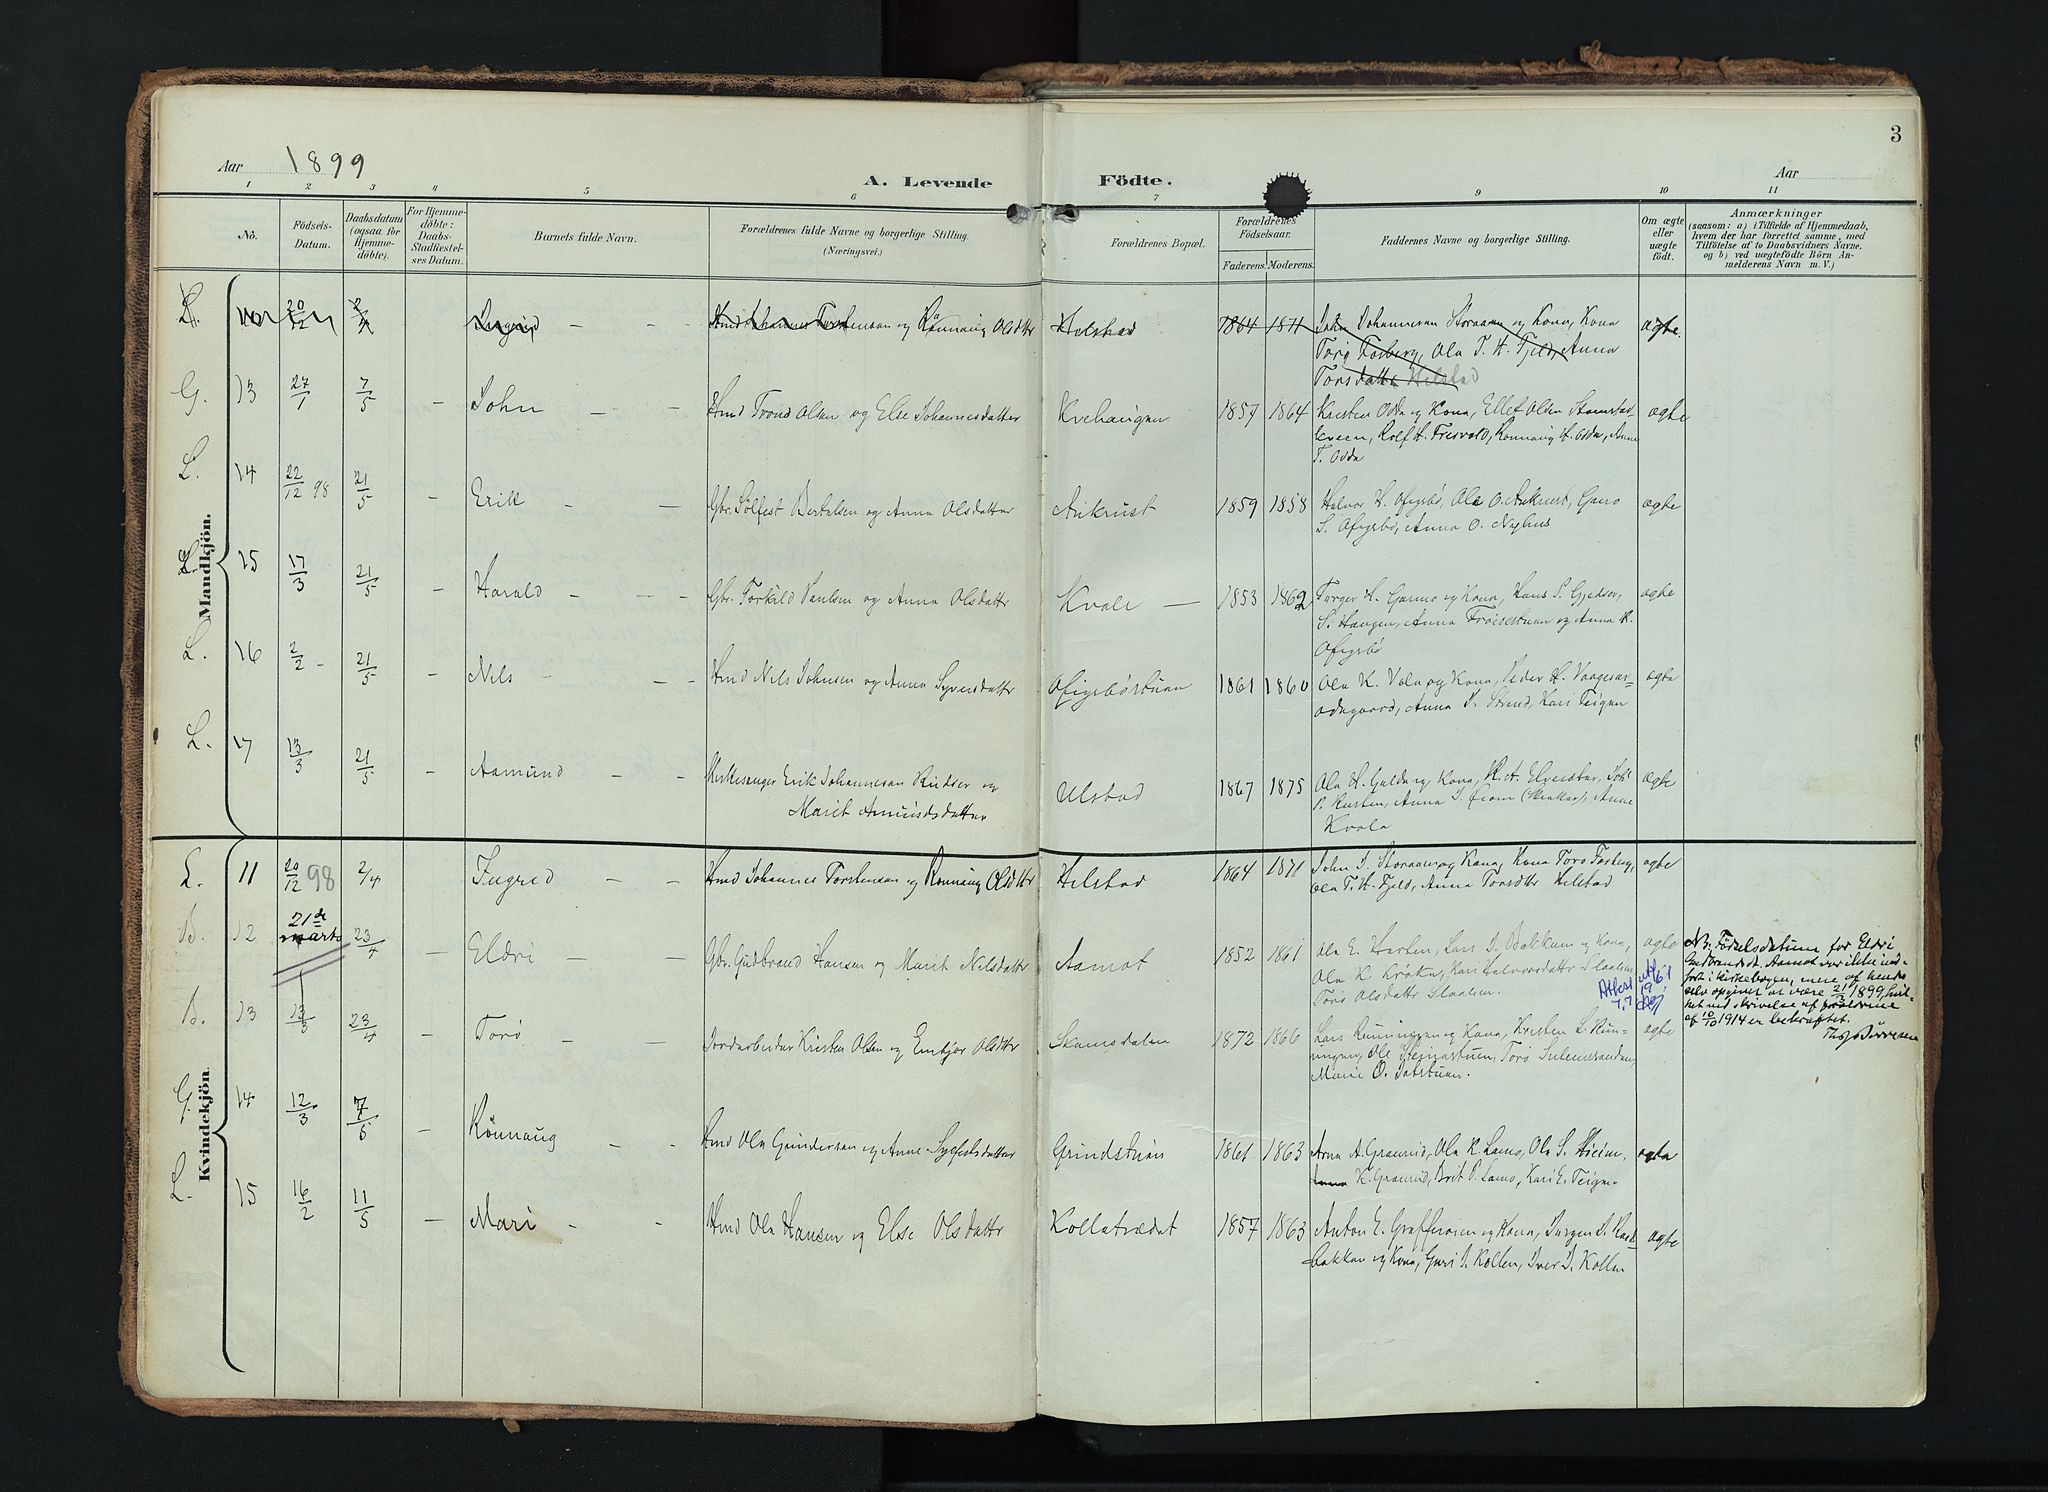 3
Aar 1899
A. Levende Födte.
Aar
1 2 3 4 5 6 7 9 10 11
Nô.
Födsels-Datum.
Daabsdatum (ogsaa for Hjemmedöbte).
For Hjemmedöbte: Daabs-Stadfæstelses Datum.
Barnets fulde Navn.
Forældrenes fulde Navne og borgerlige Stilling. (Næringsvei.)
Forældrenes Bopæl.
Forældrenes Födselsaar.
Faderens. Moderens.
Faddernes Navne og borgerlige Stilling.
Om ægte eller uægte födt.
Anmærkninger
(saasom: a) i Tilfælde af Hjemmedaab,
hvem der har forrettet samme, med
Tilföielse af to Daabsvidners Navne,
og b) ved uægtefödte Börn An-
melderens Navn m. V.)
Mandkjön.
L. 20/12 2/4 Ingrid – – Hmd Johannes Torstensen og Rønnaug Olsdtr Hilstad 1864 1871 John Johannesen Storaaen og Kona, Kona ægte
Toro Forberg, Ola T. H. Fjeld, Anna
Torsdatter Hilstad
G. 13 27/1 7/5 – John – – Hmd Trond Olsen og Else Johannesdatter Kvehaugen 1857 1864 Kristen Odde og Kona, Ellef Olsen ægte
Rolf H. Fresvold, Rønnaug H. Odde, Anne
T. Odde
L. 14 22/12 98 21/5 – Erik – – Gbr. Sølfest Bertelsen og Anna Olsdatter Aukrust 1859 1858 Halvor H. Ofigsbø, Ole O. Aukrust, Guro ægte
S. Ofigsbø, Anna O. Nyhus
L. 15 17/3 21/5 – Harald – – – Gbr. Torkild Paulsen og Anna Olsdatter Kvale – 1853 1862 H. Garmo og Kona, Hans P. Gjedser, ægte
S. Haugen, Anna Frøisestuen og Anna K.
Ofigsbø
L. 16 2/2 – 21/5 – Nils – – Hmd Nils Johnsen og Anna Syversdatter Ofigsbøstuen 1861 1860 Ola K. Vole og Kona, Peder H. Vaagesar- ægte
ødegaard, Anna P. Strand, Kari Teigen
L. 17 13/3 21/5 – Aamund – – Kirkesanger Erik Johannesen Rudser og Ulstad 1867 1875 Ola H. Gulde og Kona, H. A. Elvesæter, Joh. ægte
Marit Amundsdatter
Anna S. (Skaker), Anne
Kvale
Kvindekjön
L. 11 20/12 98 2/4 Ingrid – – Hmd Johannes Torstensen og Rønnaug Olsdtr Hilstad 1864 1871 John J. Storaaen og Kona, Kona Toro Forberg, ægte
Ola T. H. Fjeld, Anna Torsdtr Hilstad
B. 12 21de marts 23/4 – Eldri – – Gbr. Gudbrand Hansen og Marit Nilsdatter Aamot 1852 1861 Ola E. Harten, Lars J. Bakkum og Kona, ægte
Ola K. Krøka, Kari Halvorsdatter Slaalien
Toro Olsdatter Slaalien.
NB. Fødselsdatum for Eldri
Gudbrandsd. Aamot var ikke ind-
ført i kirkebogen, men af hende
selv opgives at være 21/3 1899, hvil-
ket ved skrivelse af forældrene
af 10/10 1914 er bekræftet.
Attest utst. 7.7.1961
B. 13 13/3 23/4 – Toro – – Jordarbeider Kristen Olsen og Embjør Olsdtr Skamsdalen 1872 1866 Lars Runningen og Kona, Kristen L. Run- ægte
ningen, Ole Steinarstuen, Toro
Marie O.
G. 14 12/3 7/5 – Rønnaug – – Hmd Ola Gundersen og Anne Sylfestsdatter Grindstuen 1861 1863 Arne A. Gramrud, Ola K. Lamo, Ola S. ægte
K. Gramrud, Brit P. Lamo, Kari E. Teigen
L. 15 16/2 11/5 – Mari – – Hmd Ola Hansen og Else Olsdatter Kolletrædet 1857 1863 Anton E. Graffersen og Kona, Jørgen J. ægte
bakken og Kona, Guri J. Kollen, Iver J. Kollen